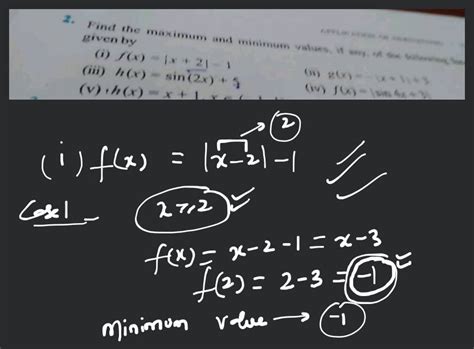 2. Find the maximum and minimum values, if any, of the following
given by
(i) f(x) = |x + 2| − 1
(ii) g(x) = − |x + 1| + 3
(iii) h(x) = sin(2x) + 5
(iv) f(x) = |sin 4x + 3|
(v) h(x) = x + 1, x ∈
2
(i) f(x) = |x-2|-1
Case1 - x ≥ 2
f(x) = x-2-1 = x-3
f(2) = 2-3 = -1
Minimum value → -1